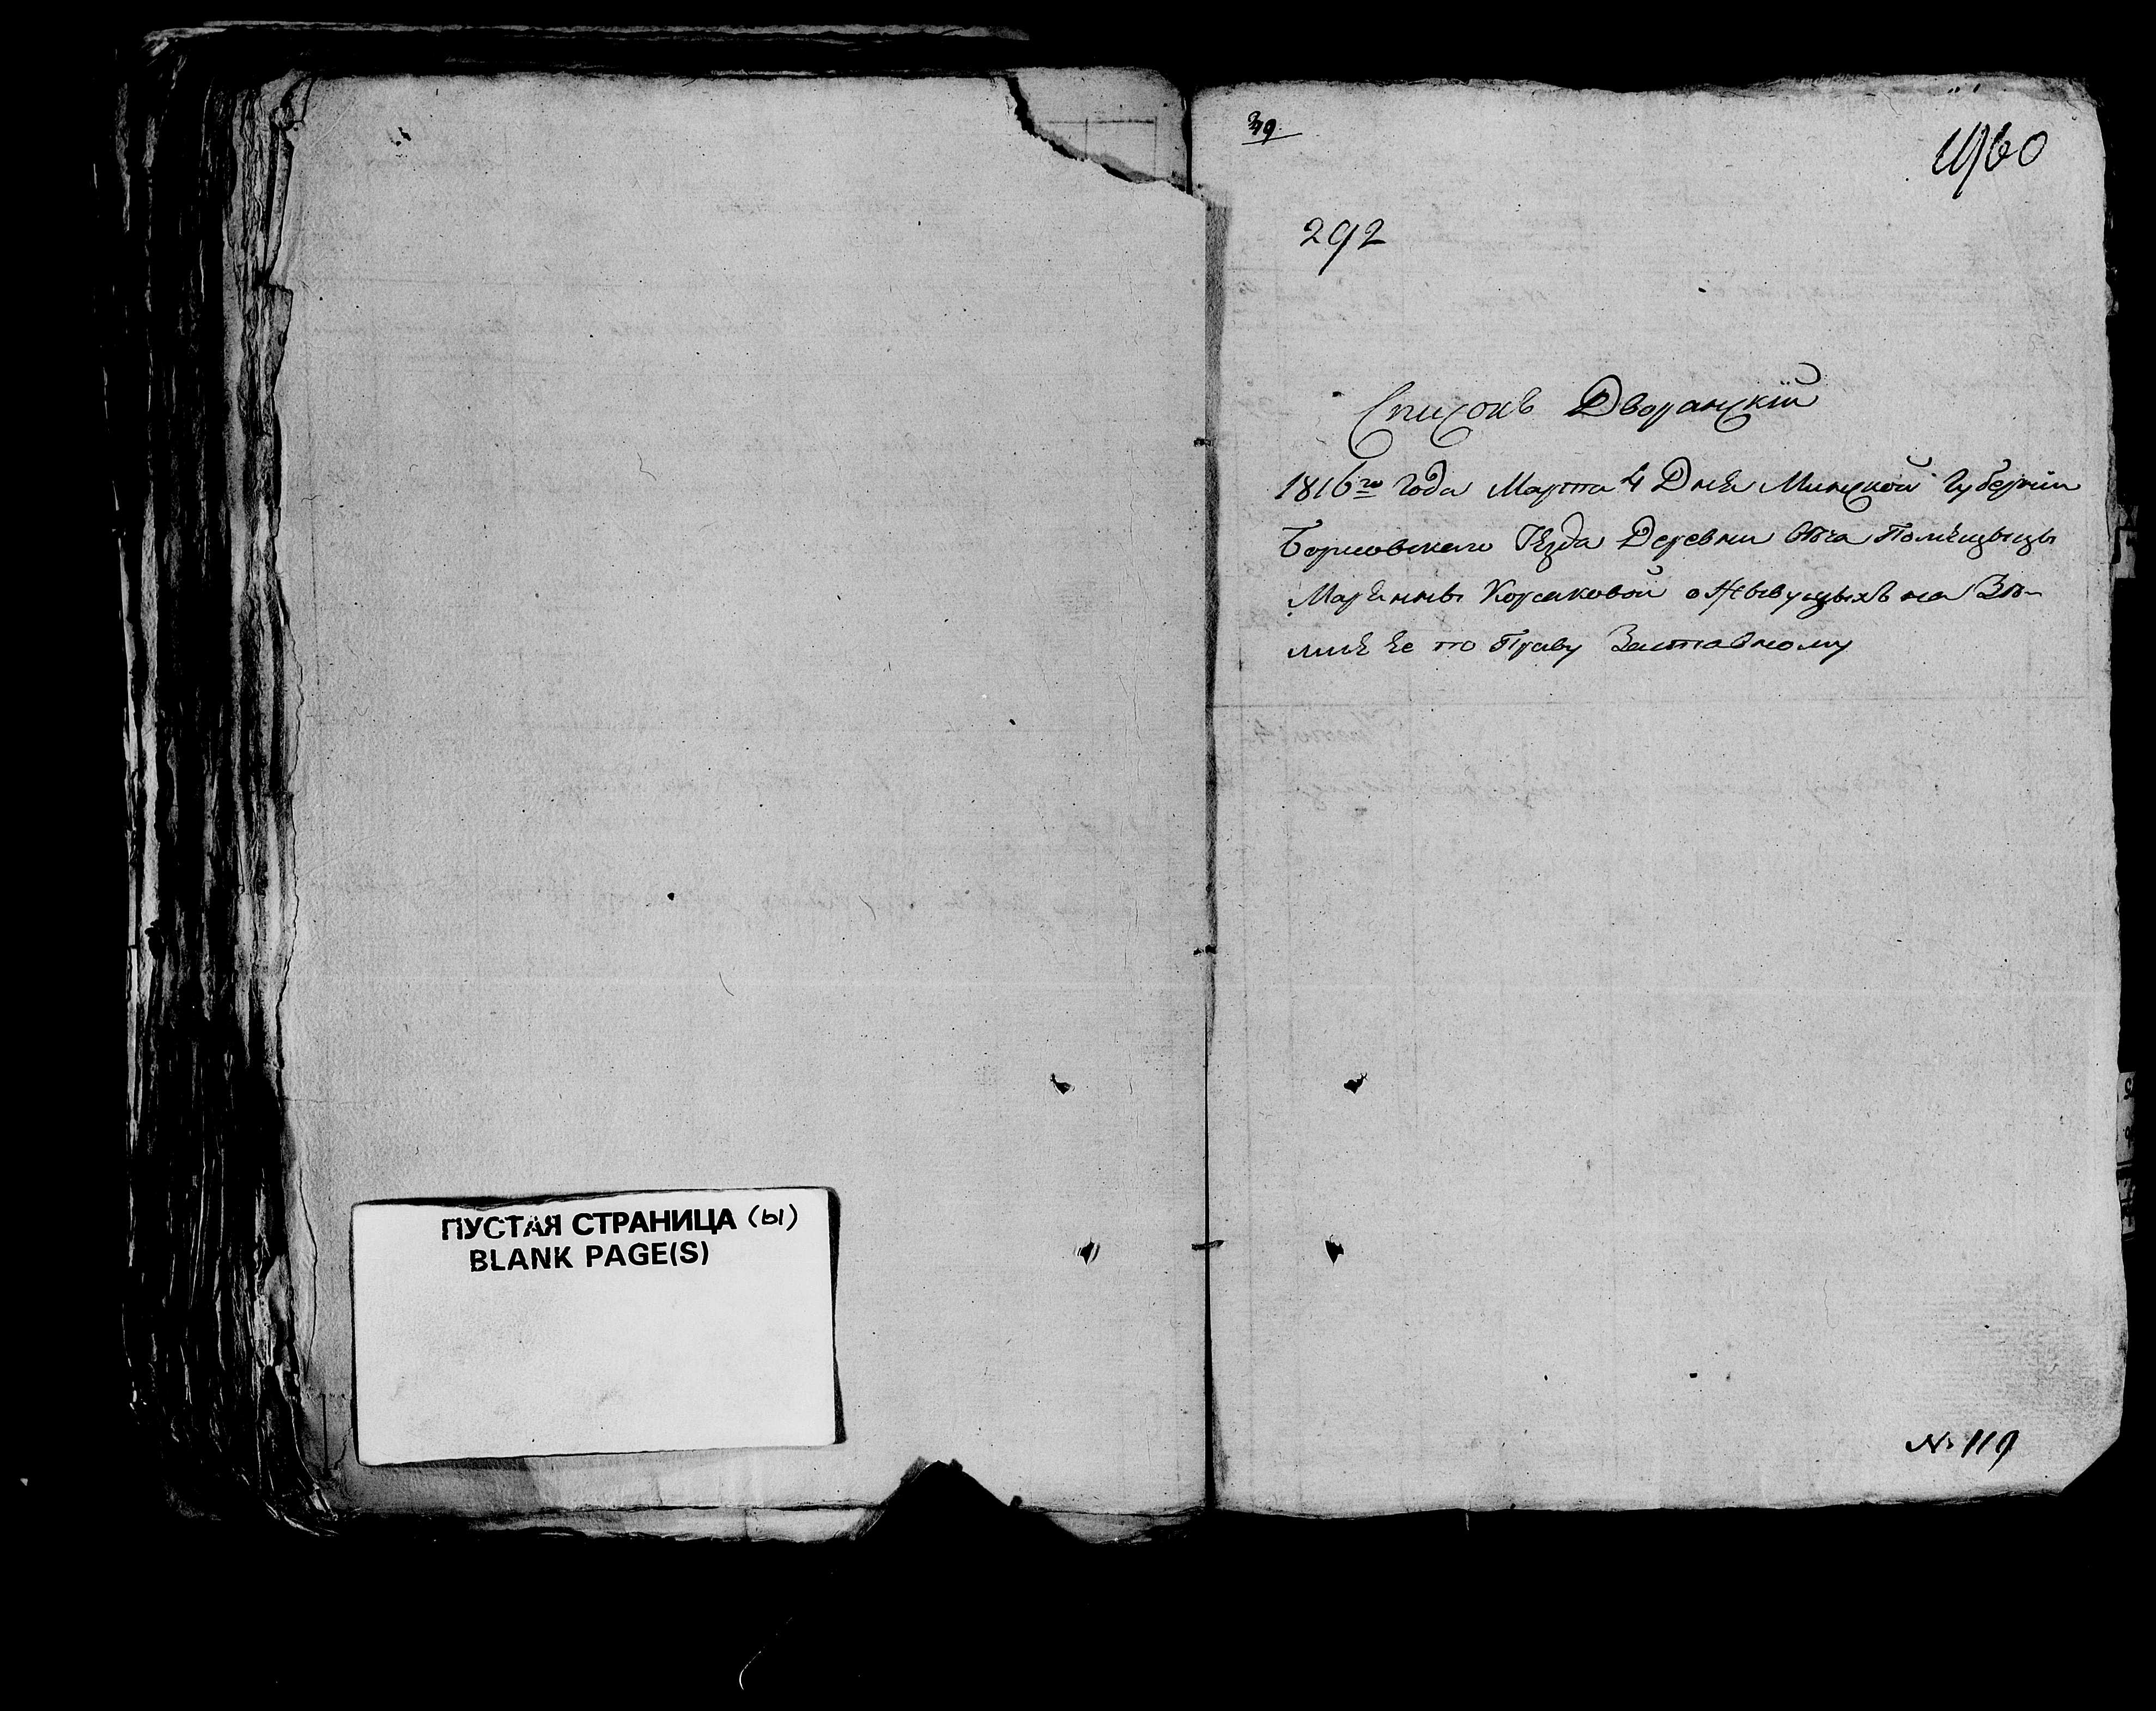 ПУСТАЯ СТРАНИЦА (ы)
BLANK PAGE(S)
292
Списокъ Дворанскій
1816го Года Марта 4 Дня Минской Губерніи
Борисовскаго Уезда Деревни Помѣщыцы
Корсаковой о Живущыхъ на
по Праву Заставному
№ 119